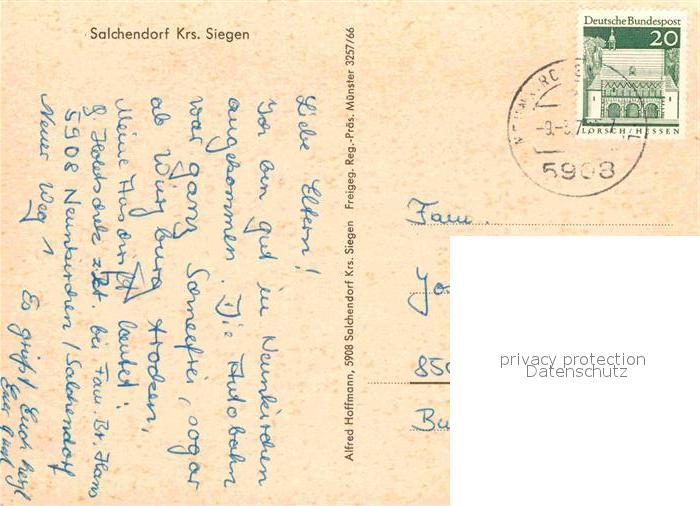 Salchendorf Krs. Siegen
Liebe Eltern!
Ich bin gut in Neunkirchen
angekommen. Die Autobahn
war ganz Schneefrei, sogar
ab Würzburg trocken.
Meine Anschrift lautet:
z.Zt. bei Fam. Br. Hans
5908 Neunkirchen / Salchendorf
Neuer Weg 1
Es grüßt Euch herzl.
Euer
Alfred Hoffmann, 5908 Salchendorf Krs. Siegen Freigeg. Reg.-Präs. Münster 3257/66
Deutsche Bundespost
20
LORSCH/HESSEN
5908
Fam.
Jo
850
Bu
privacy protection
Datenschutz